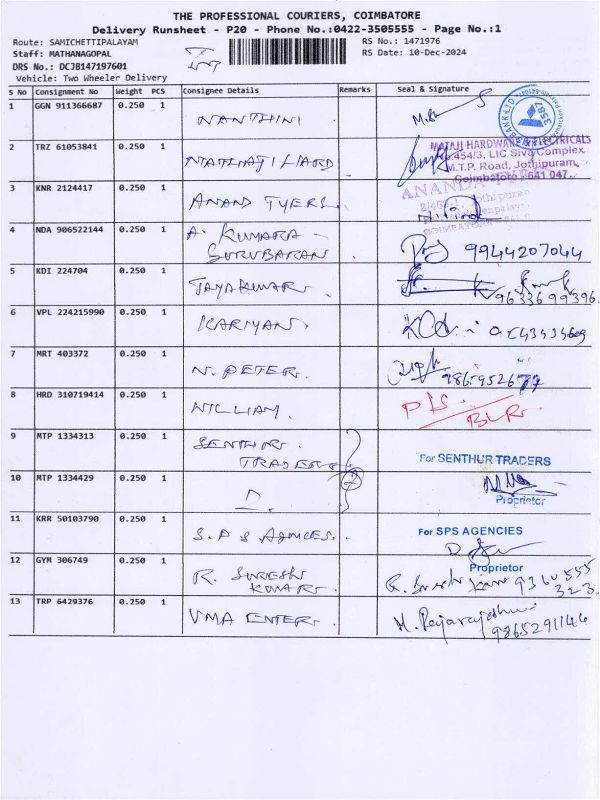 THE PROFESSIONAL COURIERS, COIMBATORE
Delivery Runsheet - P20 - Phone No.:0422-3505555 - Page No.:1
Route: SAMICHETTIPALAYAM RS No.: 1471976
Staff: MATHANAGOPAL RS Date: 10-Dec-2024
DRS No.: DCJB147197601
Vehicle: Two Wheeler Delivery
S No Consignment No Weight PCS Consignee Details Remarks Seal & Signature
1 GGN 911366687 0.250 1 NANTHINI
2 TRZ 61053841 0.250 1 MATAJI HARDWARE & ELECTRICALS
No.454/3, LIC Siva Complex
M.T.P. Road, Jothipuram,
Coimbatore - 641 047.
3 KNR 2124417 0.250 1 ANAND TYERS
4 NDA 906522144 0.250 1 A. KUMARA -
GURUBARAN 9944207044
5 KDI 224704 0.250 1 JAYAKUMAR 9633699396
6 VPL 224215990 0.250 1 KARIYAN
7 MRT 403372 0.250 1 N. PETER
8 HRD 310719414 0.250 1 WILLIAM.
9 MTP 1334313 0.250 1 SENTHUR
TRADERS For SENTHUR TRADERS
10 MTP 1334429 0.250 1 Proprietor
11 KRR 50103790 0.250 1 S.P S AGENCIES. For SPS AGENCIES
Proprietor
12 GYM 306749 0.250 1 R. SURESH
KUMAR 9360555
323
13 TRP 6429376 0.250 1 VMA ENTER M. Rajarajeshwari
9865291144